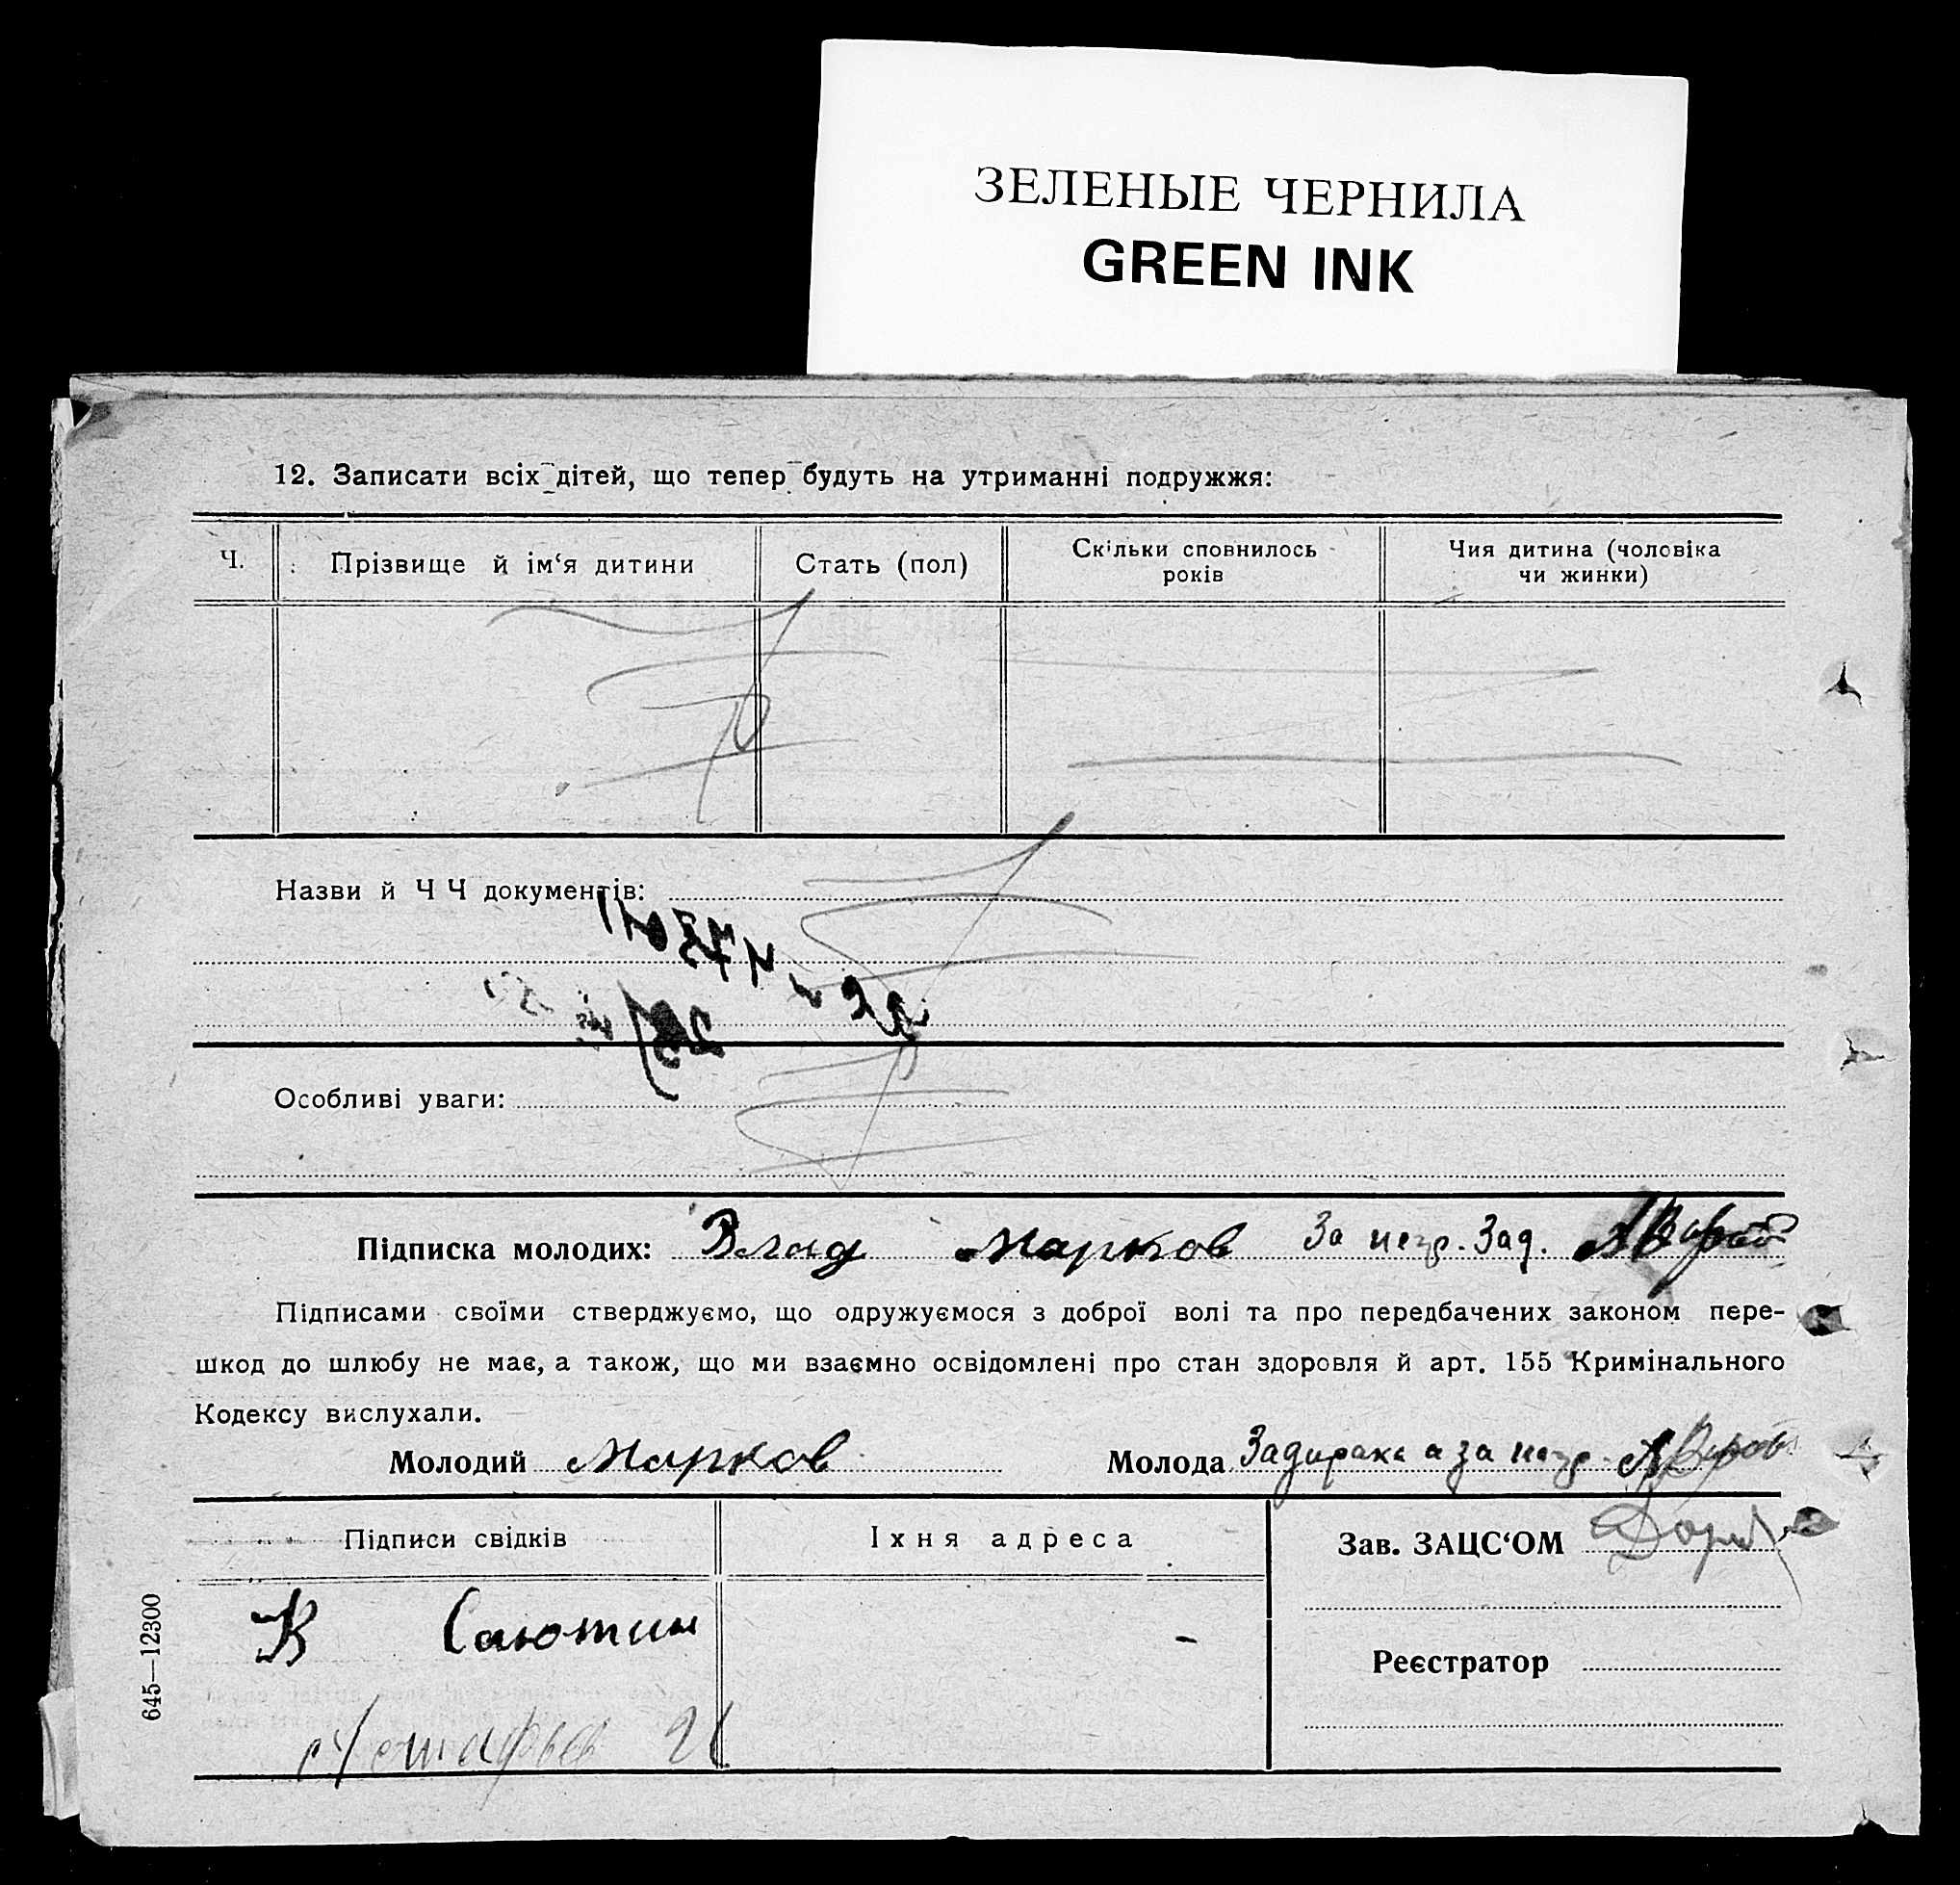 ЗЕЛЕНЫЕ ЧЕРНИЛА
GREEN INK
12. Записати всіх дітей, що тепер будуть на утриманні подружжя:
Ч.
Прізвище й ім‘я дитини
Стать (пол)
Скільки сповнилось
років
Чия дитина (чоловіка
чи жинки)
Назви й Ч Ч документів:
Особливі уваги:
Підписка молодих: Влад Марков За негр. Зад.
Підписами своїми стверджуємо, що одружуємося з доброї волі та про передбачених законом пере-
шкод до шлюбу не має, а також, що ми взаємно освідомлені про стан здоровля й арт. 155 Кримінального
Кодексу вислухали.
Молодий Марков Молода за негр.
Підписи свідків
Іхня адреса
Зав. ЗАЦС‘ОМ
К Саютин
-
Реєстратор
645—12300